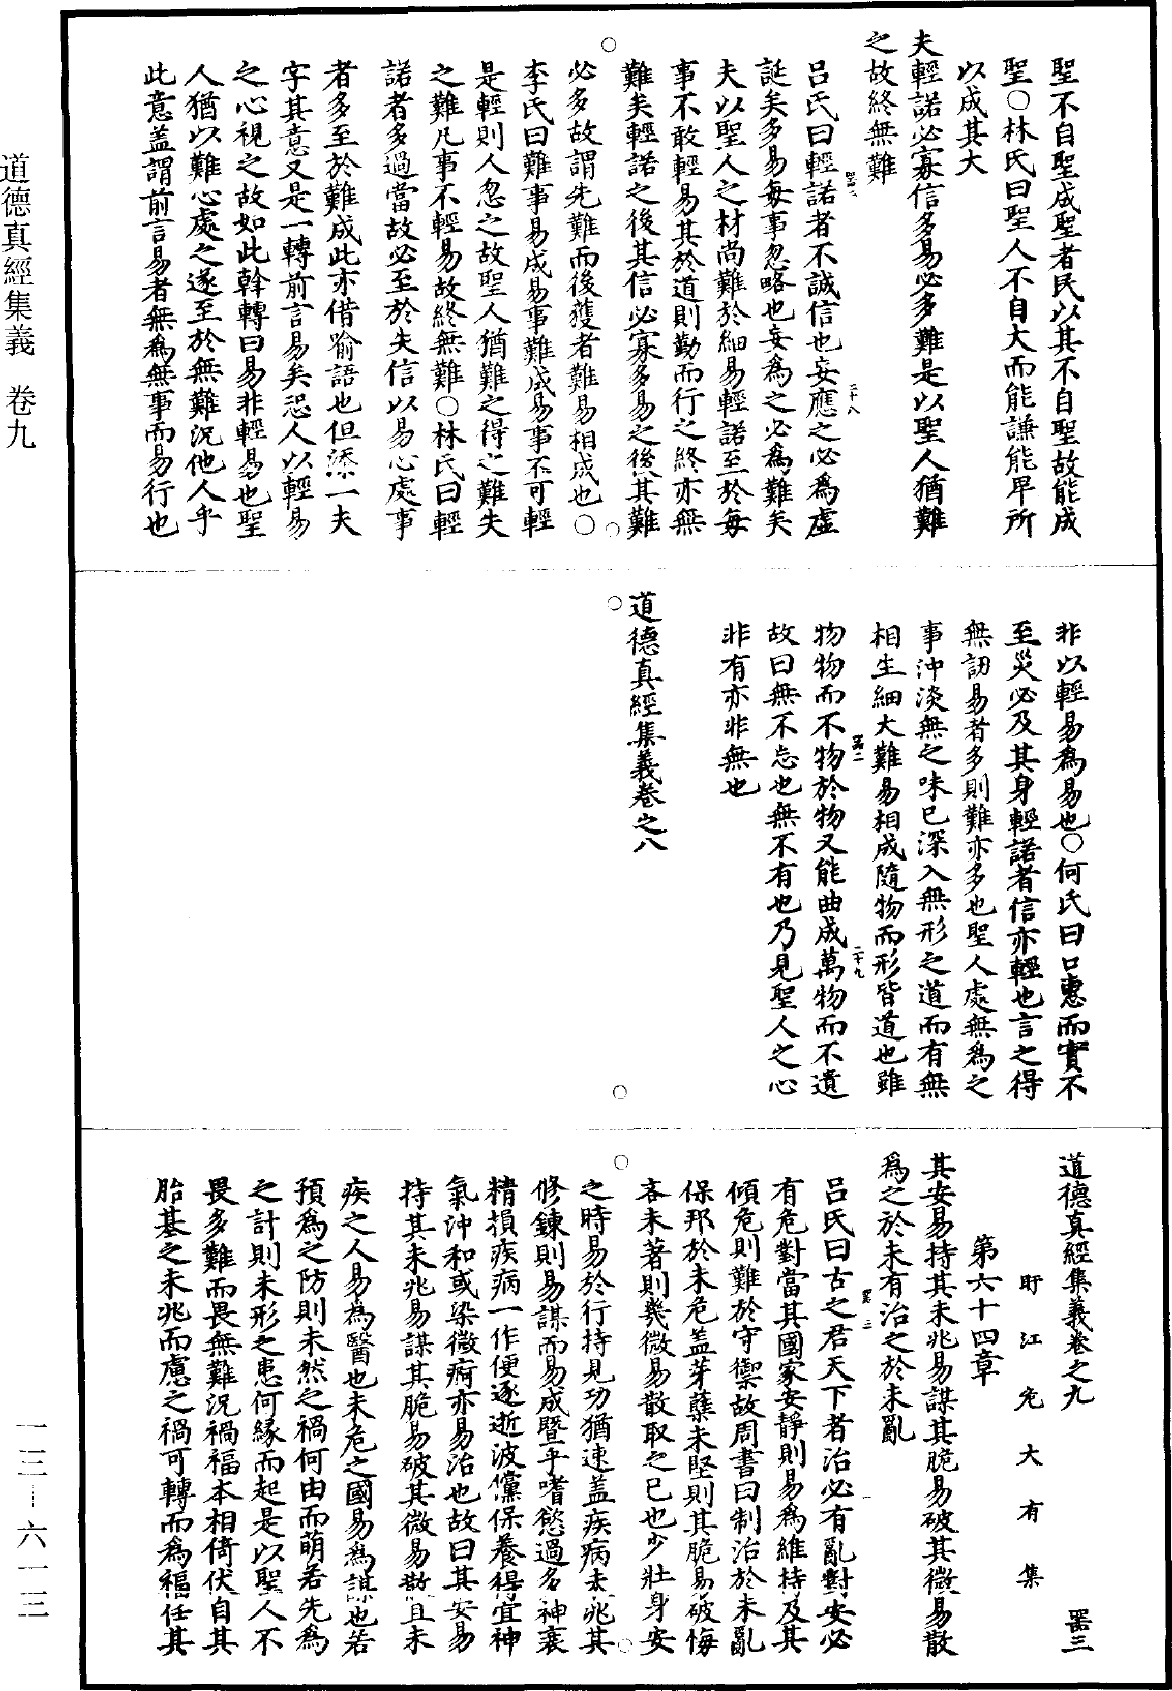 聖不自聖成聖者民以其不自聖故能成
聖○林氏曰聖人不自大而能謙能卑所
以成其大
夫輕諾必寡信多易必多難是以聖人猶難
之故終無難
呂氏曰輕諾者不誠信也妄應之必爲虛
誕矣多易每事忽略也妄爲之必爲難矣
夫以聖人之材尚難於細易輕諾至於每
事不敢輕易其於道則勤而行之終亦無
難矣輕諾之後其信必寡多易之後其難
必多故謂先難而後獲者難易相成也○
李氏曰難事易成易事難成易事不可輕
是輕則人忽之故聖人猶難之得之難失
之難凡事不輕易故終無難○林氏曰輕
諾者多過當故必至於失信以易心處事
者多至於難成此亦借喻語也但添一夫
字其意又是一轉前言易矣恐人以輕易
之心視之故如此斡轉曰易非輕易也聖
人猶以難心處之遂至於無難況他人乎
此意盖謂前言易者無爲無事而易行也
非以輕易爲易也○何氏曰口惠而實不
至災必及其身輕諾者信亦輕也言之得
無訒易者多則難亦多也聖人處無爲之
事沖淡無之味已深入無形之道而有無
相生細大難易相成隨物而形皆道也雖
物物而不物於物又能曲成萬物而不遺
故曰無不忘也無不有也乃見聖人之心
非有亦非無也
道德真經集義卷之八
道德真經集義卷之九 罟三
盱江危大有集
第六十四章
其安易持其未兆易謀其脆易破其微易散
爲之於未有治之於未亂
呂氏曰古之君天下者治必有亂對安必
有危對當其國家安靜則易爲維持及其
傾危則難於守禦故周書曰制治於未亂
保邦於未危盖芽蘖未堅則其脆易破悔
吝未著則幾微易散取之已也少壯身安
之時易於行持見功猶速盖疾病未兆其
修鍊則易謀而易成暨乎嗜慾過多神衰
精損疾病一作便逐逝波儻保養得宜神
氣沖和或染微痾亦易治也故曰其安易
持其未兆易謀其脆易破其微易散且未
疾之人易爲醫也未危之國易爲謀也若
預爲之防則未然之禍何由而萌若先爲
之計則未形之患何緣而起是以聖人不
畏多難而畏無難況禍福本相倚伏自其
胎基之未兆而慮之禍可轉而爲福任其
道德真經集義 卷九
一三—六一三